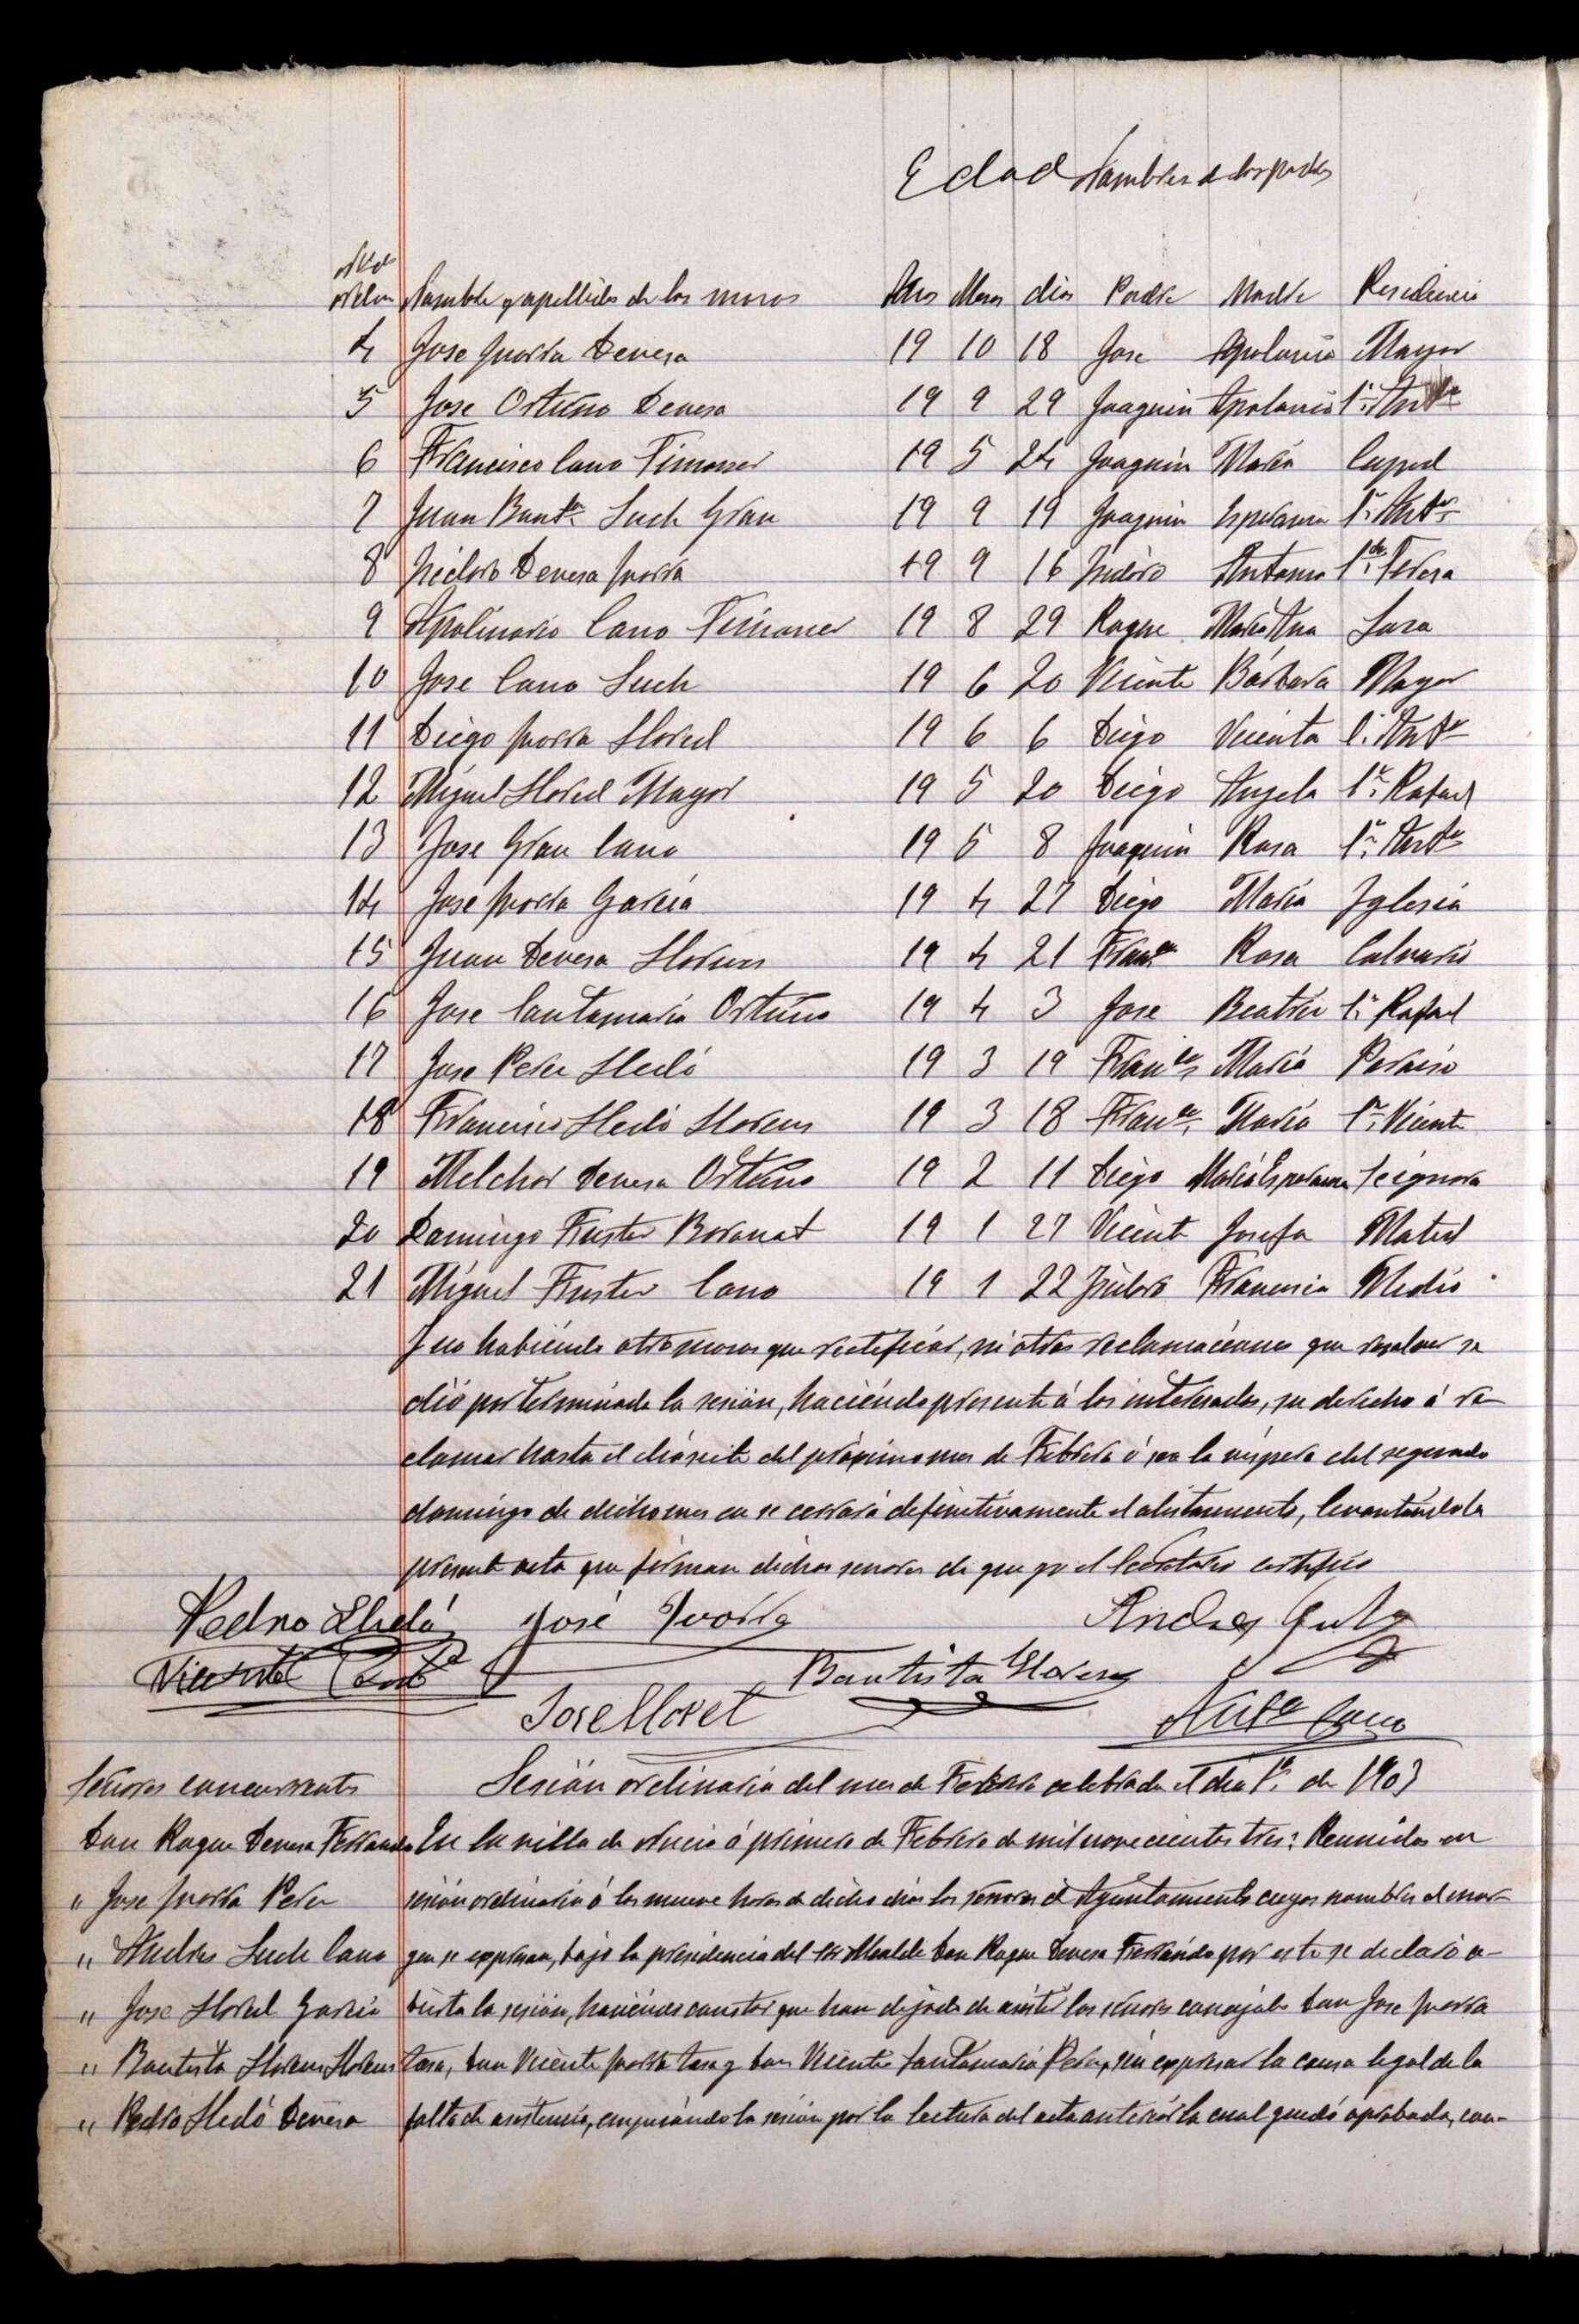 Edad Nombres de los padres
Nº de
orden Nombre y apellidos de los mozos Años Meses dias Padre Madre Residencia
4 Jose Ivorra Devesa 19 10 18 Jose Apolonia Mayor
5 Jose Ortuño Devesa 19 9 29 Joaquin Apolonia Sn. Antº
6 Francisco Cano Timoner 19 5 24 Joaquin Maria
7 Juan Bautª Such Grau 19 9 19 Joaquin Esperanza Sn. Antº
8 Isidoro Devesa Ivorra 19 9 16 Isidoro Antonia Sta. Teresa
9 Apolinario Cano Timoner 19 8 29 Roque Maria Ana
10 Jose Cano Such 19 6 20 Vicente Bárbara Mayor
11 Diego Ivorra Lloret 19 6 6 Diego Vicenta S. Antº
12 Miguel Lloret Mayor 19 5 20 Diego Angela Sn. Rafael
13 Jose Grau Cano 19 5 8 Joaquin Rosa Sn. Antº
14 Jose Ivorra Garcia 19 4 27 Diego Maria Iglesia
15 Juan Devesa Llorens 19 4 21 Franco Rosa Calvario
16 Jose Santamaria Ortuño 19 4 3 Jose Beatriz Sn. Rafael
17 Jose Perez Lledó 19 3 19 Franco Maria Paraiso
18 Francisco Lledó Llorens 19 3 18 Franco Maria Sn. Vicente
19 Melchor Devesa Ortuño 19 2 11 Diego Maria Esperanza
20 Domingo Fuster Boronat 19 1 27 Vicente Josefa
21 Miguel Fuster Cano 19 1 22 Isidoro Francisca Medio
Y no habiendo otro mozos que rectificar, ni otras reclamaciones que resolver se
dió por terminada la sesion, haciéndo presente á los interesados, su derecho á re-
clamar hasta el dia siete del próximo mes de Febrero ó sea la vispera del segundo
domingo de dicho mes en se cerrará definitivamente el alistamiento, levantándo la
presente acta que firman dichos señores de que yo el Secretario certifico
Pedro Lledó José Ivorra Andres
Vicente Bautista Llorens
Jose Lloret Antº Cano
Señores concurrentes Sesión ordinaria del mes de Febrero celebrada el dia 1º de 1903
Don Roque Devesa Ferrando En la villa de Nucia á primero de Febrero de mil novecientos tres: Reunidos en
" Jose Ivorra Perez sesión ordinaria á las nueve horas de dicho dia los señores del Ayuntamiento cuyos nombres al mar-
" Andres Such Cano gen se expresan, bajo la presidencia del Sr Alcalde Don Roque Devesa Ferrándo por este se declaró a-
" Jose Lloret Garcia bierta la sesión, haciéndo constar que han dejado de asistir los señores concejales Don Jose Ivorra
" Bautista Llorens Llorens Don Vicente Ivorra y Don Vicente Santamaria Perez, sin expresar la causa legal de la
" Pedro Lledó Devesa falta de asistencia, empezándo la sesión por la lectura del acta anterior la cual quedó aprobada, con-